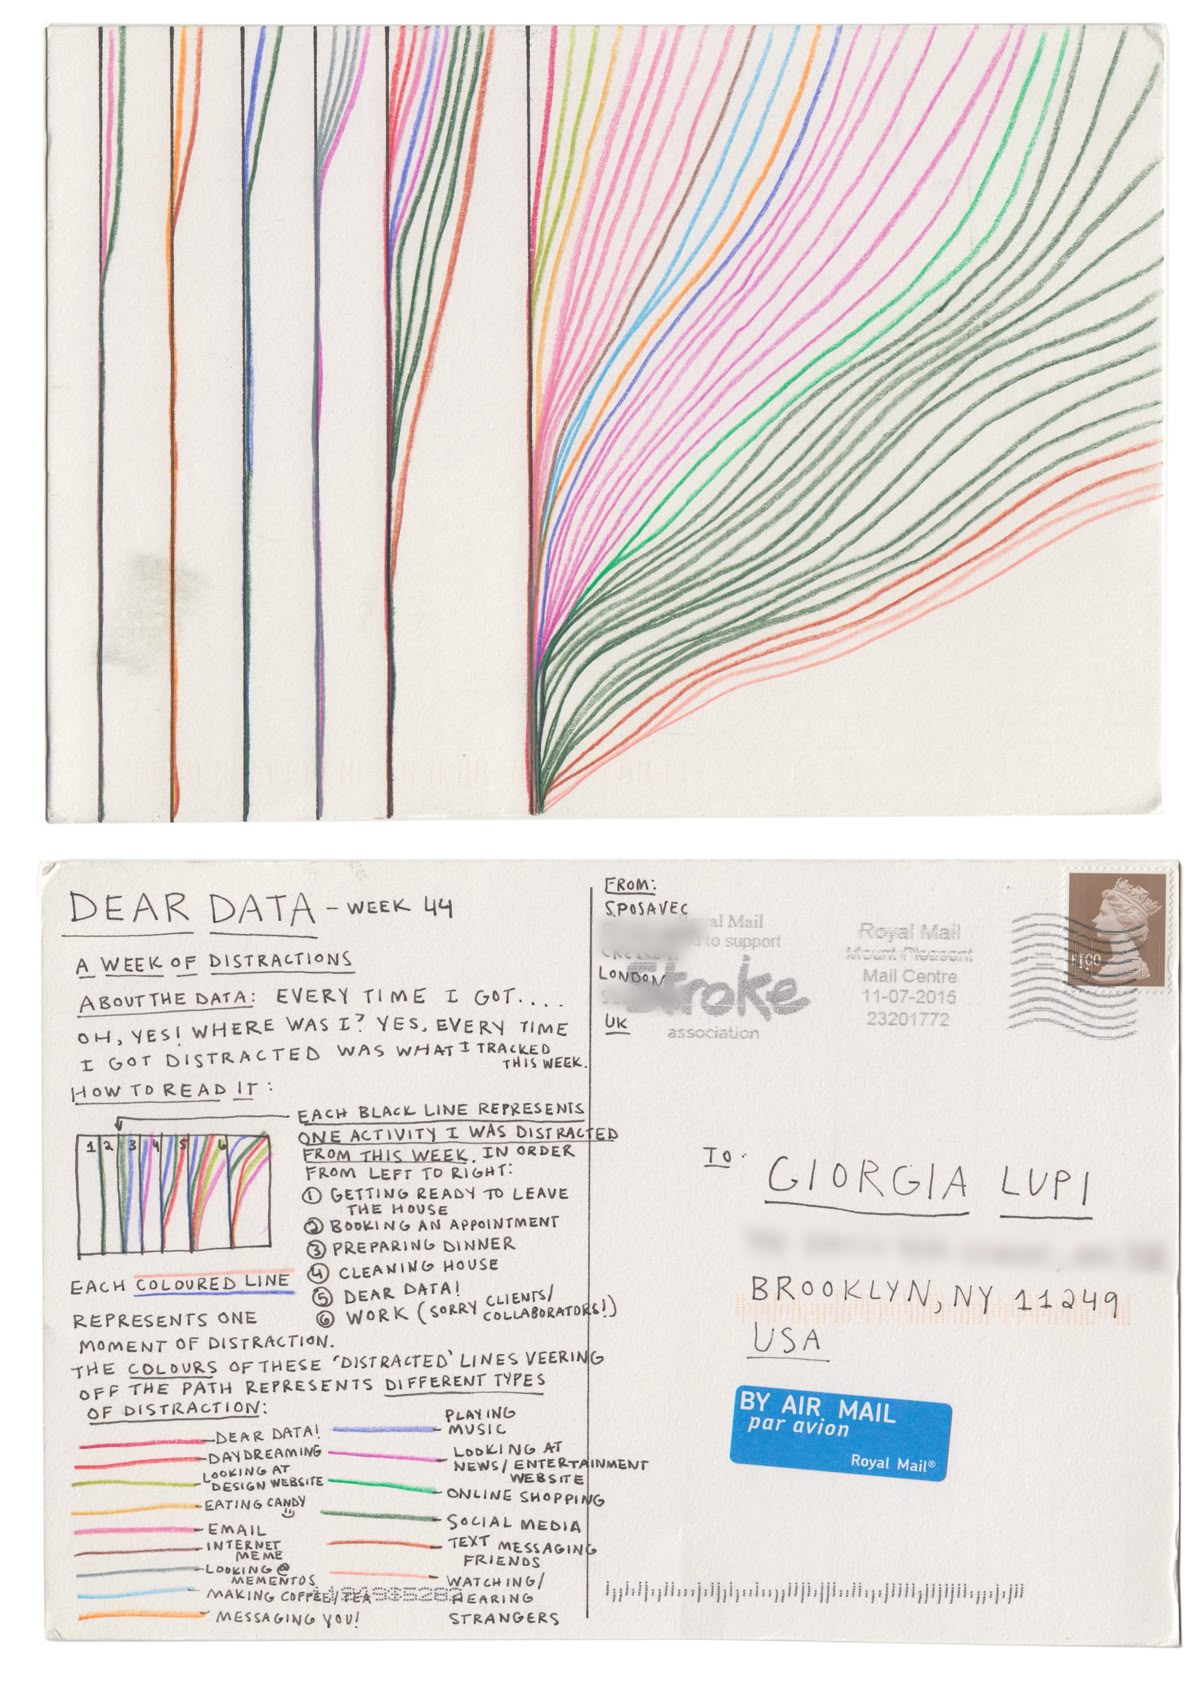 DEAR DATA - WEEK 44
A WEEK OF DISTRACTIONS
ABOUT THE DATA: EVERY TIME I GOT....
OH, YES! WHERE WAS I? YES, EVERY TIME
I GOT DISTRACTED WAS WHAT I TRACKED
THIS WEEK.
HOW TO READ IT:
1 2 3 4 5 6
EACH BLACK LINE REPRESENTS
ONE ACTIVITY I WAS DISTRACTED
FROM THIS WEEK, IN ORDER
FROM LEFT TO RIGHT:
① GETTING READY TO LEAVE
THE HOUSE
② BOOKING AN APPOINTMENT
③ PREPARING DINNER
④ CLEANING HOUSE
⑤ DEAR DATA!
⑥ WORK (SORRY CLIENTS/
COLLABORATORS!)
EACH COLOURED LINE
REPRESENTS ONE
MOMENT OF DISTRACTION.
THE COLOURS OF THESE 'DISTRACTED' LINES VEERING
OFF THE PATH REPRESENTS DIFFERENT TYPES
OF DISTRACTION:
DEAR DATA!
DAYDREAMING
LOOKING AT
DESIGN WEBSITE
EATING CANDY
EMAIL
INTERNET
MEME
LOOKING @
MEMENTOS
MAKING COFFEE/TEA
MESSAGING YOU!
PLAYING
MUSIC
LOOKING AT
NEWS/ENTERTAINMENT
WEBSITE
ONLINE SHOPPING
SOCIAL MEDIA
TEXT MESSAGING
FRIENDS
WATCHING/
HEARING
STRANGERS
FROM:
S.POSAVEC
LONDON
UK
Mail
to support
Stroke
association
Royal Mail
Mount Pleasant
Mail Centre
11-07-2015
23201772
£1.00
TO:
GIORGIA LUPI
BROOKLYN, NY 11249
USA
BY AIR MAIL
par avion
Royal Mail®